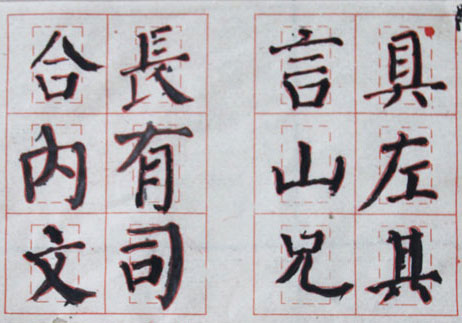 具左其
言山兄
長有司
合内文